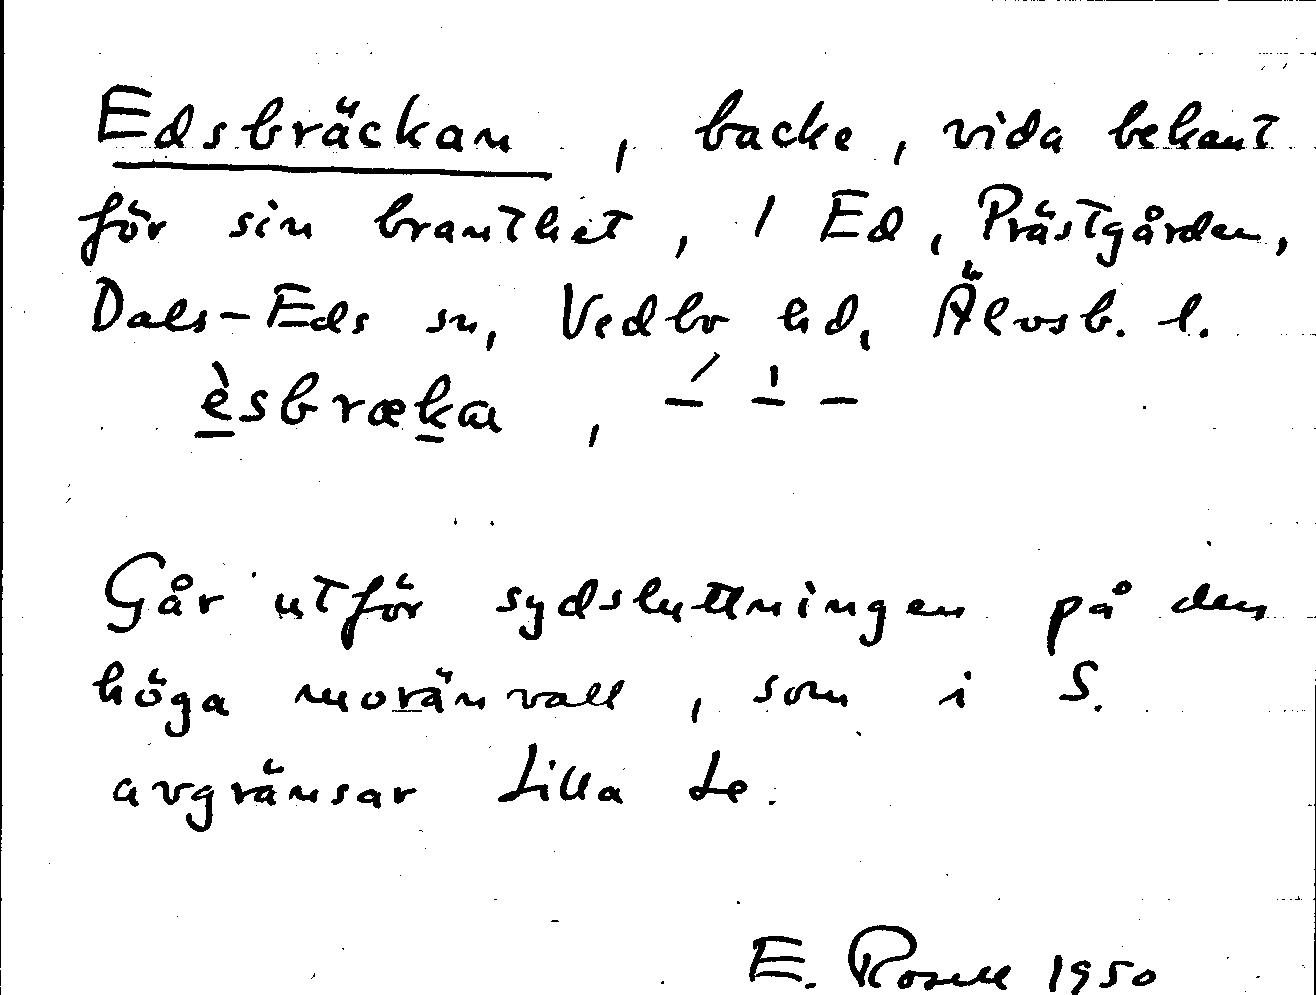 Edsbräckan, backe, vida bekant
för sin branthet, / Ed, Prästgården,
Dals-Eds sn, Vedbo hd, Älvsb. l.
èsbræka,
Går utför sydsluttningen på den
höga moränvall, som i S.
avgränsar Lilla Le.
E. Rosell 1950